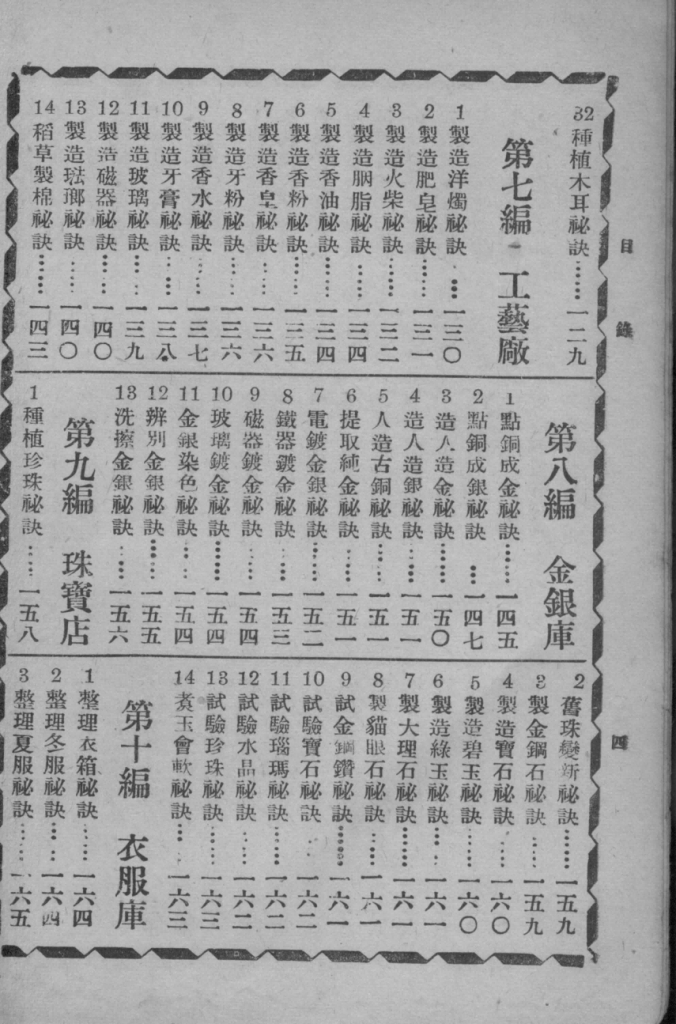 目錄
四
32種植木耳祕訣……一二九
第七編 工藝廠
1製造洋燭祕訣……一三〇
2製造肥皂祕訣……一三一
3製造火柴祕訣……一三二
4製造胭脂祕訣……一三四
5製造香油祕訣……一三四
6製造香粉祕訣……一三五
7製造香皇祕訣……一三六
8製造牙粉祕訣……一三六
9製造香水祕訣……一三七
10製造牙膏祕訣……一三八
11製造玻璃祕訣……一三九
12製造磁器祕訣……一四〇
13製造琺瑯祕訣……一四〇
14稻草製棉祕訣……一四三
第八編 金銀庫
1點銅成金祕訣……一四五
2點銅成銀祕訣……一四七
3造人造金祕訣……一五〇
4造人造銀祕訣……一五一
5人造古銅祕訣……一五一
6提取純金祕訣……一五一
7電鍍金銀祕訣……一五二
8鐵器鍍金祕訣……一五三
9磁器鍍金祕訣……一五四
10玻璃鍍金祕訣……一五四
11金銀染色祕訣……一五四
12辨別金銀祕訣……一五五
13洗擦金銀祕訣……一五六
第九編 珠寶店
1種植珍珠祕訣……一五八
2舊珠變新祕訣……一五九
3製金鋼石祕訣……一五九
4製造寶石祕訣……一六〇
5製造碧玉祕訣……一六〇
6製造綠玉祕訣……一六一
7製大理石祕訣……一六一
8製貓眼石祕訣……一六一
9試金鋼鑽祕訣……一六一
10試驗寶石祕訣……一六二
11試驗瑙瑪祕訣……一六二
12試驗水晶祕訣……一六二
13試驗珍珠祕訣……一六三
14煑玉會軟祕訣……一六三
第十編 衣服庫
1整理衣箱祕訣……一六四
2整理冬服祕訣……一六四
3整理夏服祕訣……一六五